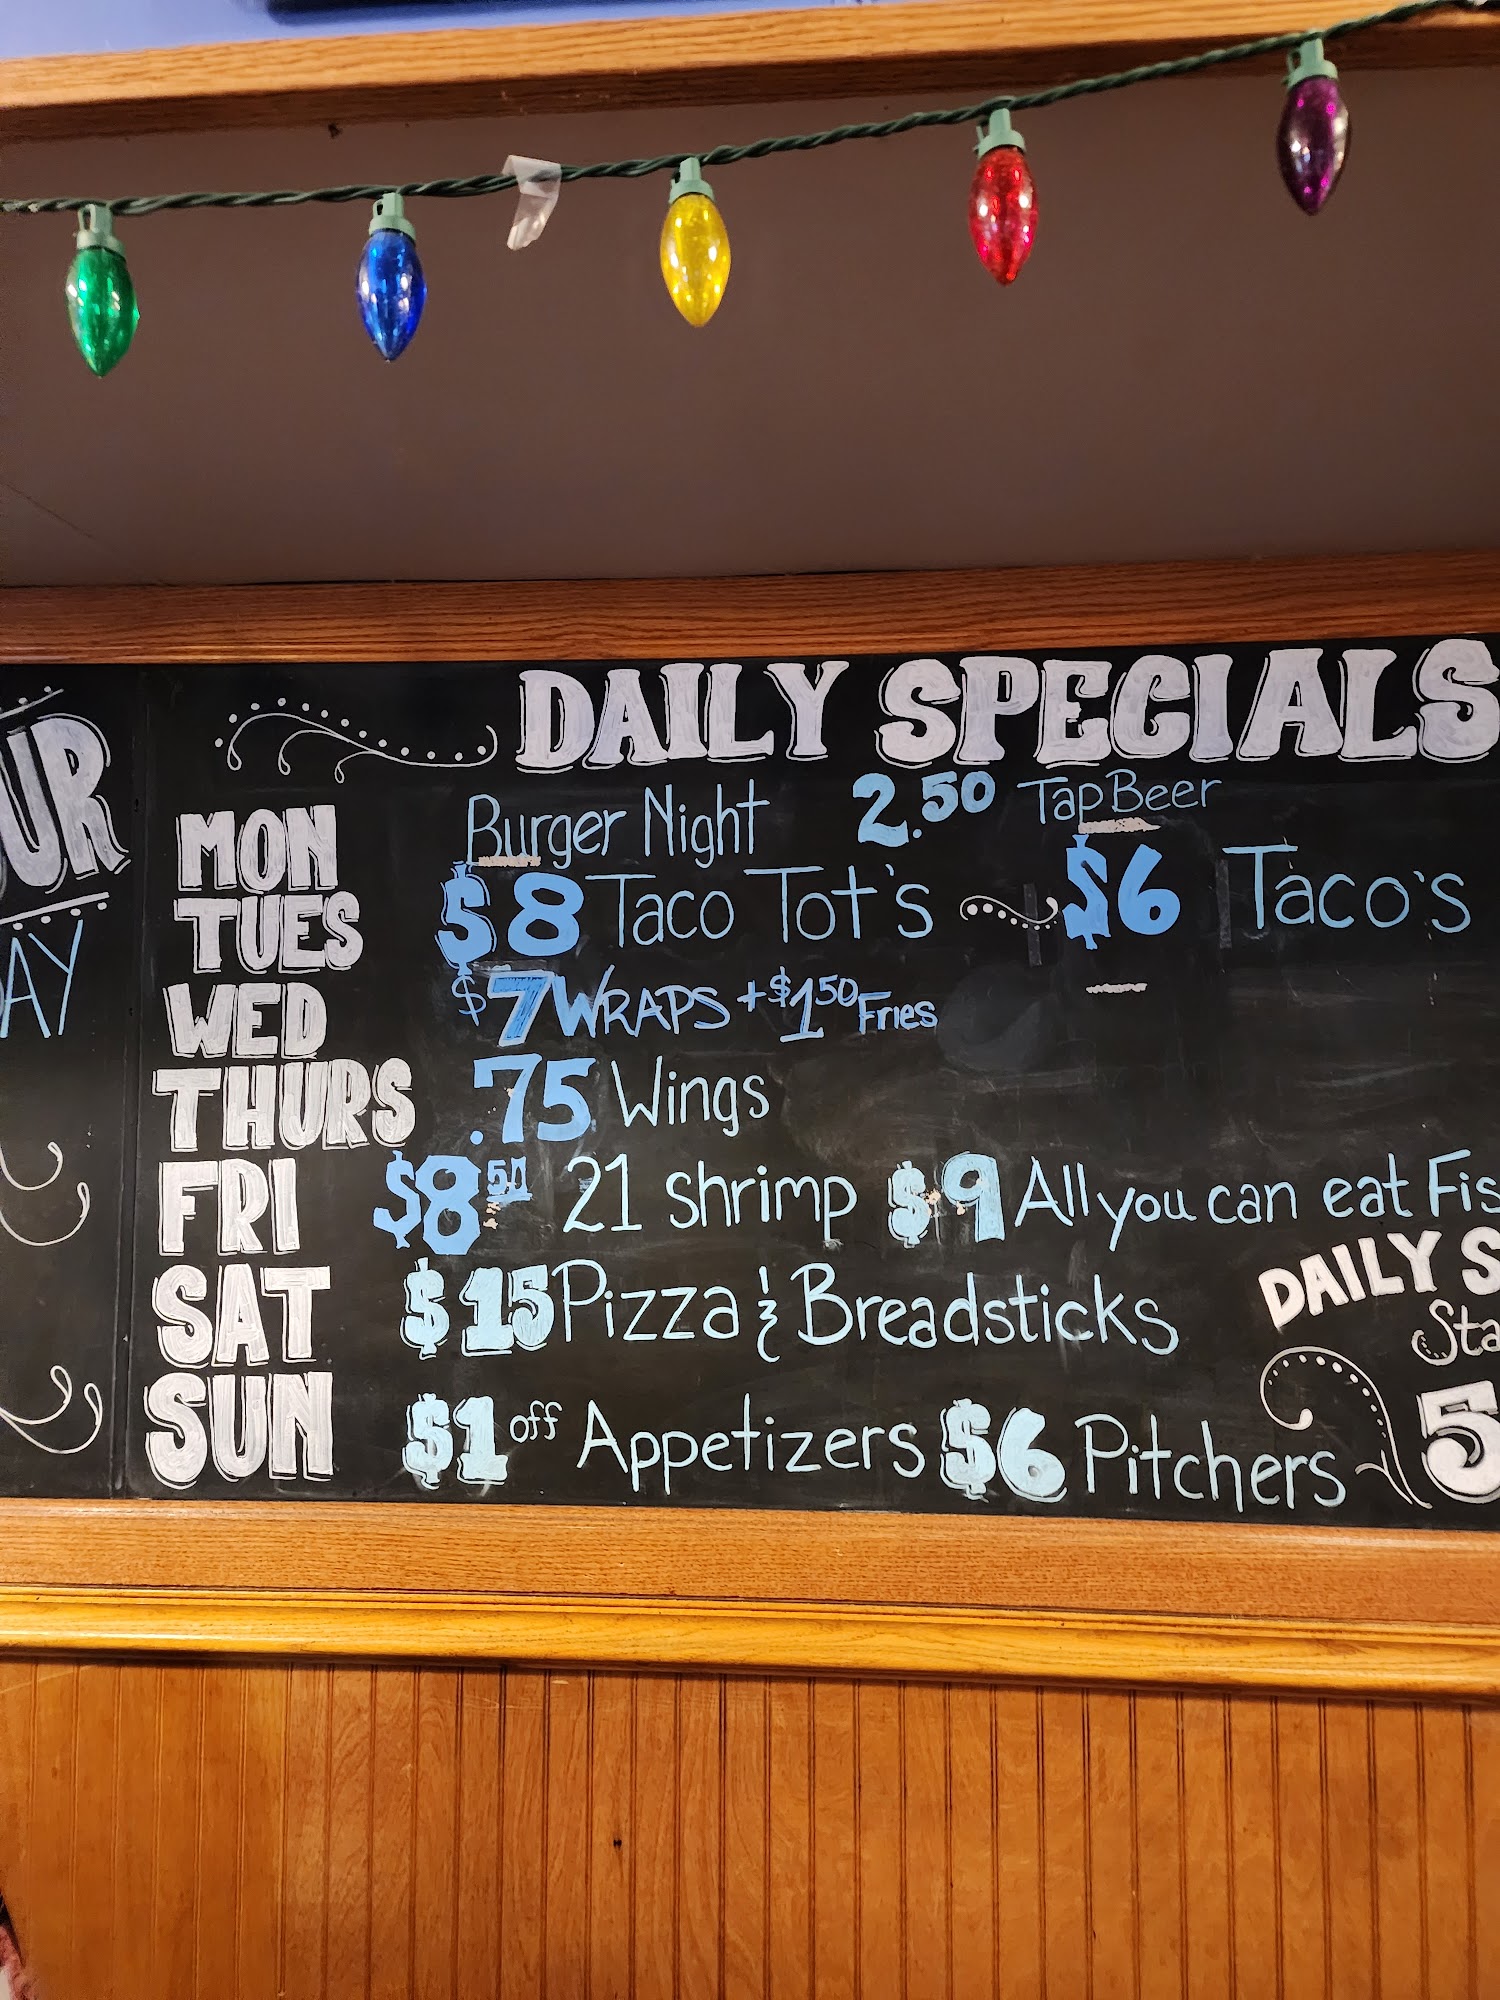 DAILY SPECIALS
MON Burger Night 2.50 Tap Beer
TUES $8 Taco Tot's $6 Taco's
WED $7 WRAPS + $1.50 Fries
THURS .75 Wings
FRI $8.50 21 shrimp $9 All you can eat Fis
SAT $15 Pizza & Breadsticks
SUN $1 off Appetizers $6 Pitchers
UR
AY
DAILY S
Sta
5